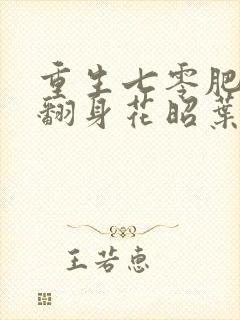 重生七零肥
翻身花昭葉
王若惠